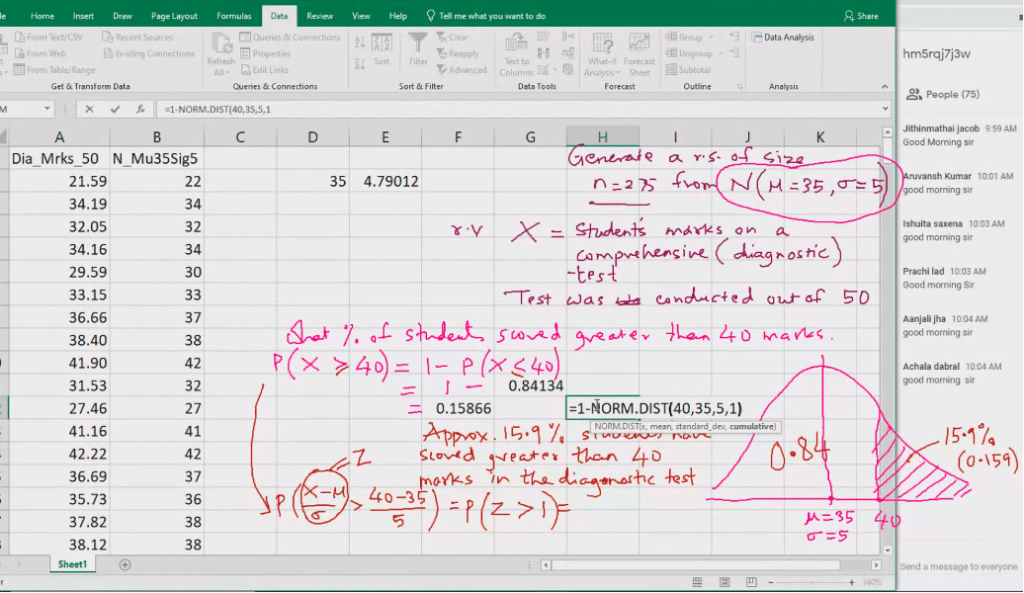 le Home Insert Draw Page Layout Formulas Data Review View Help Tell me what you want to do Share
From Text/CSV Recent Sources
From Web Existing Connections
From Table/Range
Get & Transform Data
Refresh All
Queries & Connections
Properties
Edit Links
Queries & Connections
Sort Filter
Clear
Reapply
Advanced
Sort & Filter
Text to Columns
Data Tools
What-If Analysis Forecast Sheet
Forecast
Group
Ungroup
Subtotal
Outline
Data Analysis
Analysis
M =1-NORM.DIST(40,35,5,1
A B C D E F G H I J K
Dia_Mrks_50 N_Mu35Sig5
21.59 22 35 4.79012
34.19 34
32.05 32
34.16 34
29.59 30
33.15 33
36.66 37
38.40 38
41.90 42
31.53 32 0.84134
27.46 27 0.15866 =1-NORM.DIST(40,35,5,1)
NORM.DIST(x, mean, standard_dev, cumulative)
41.16 41
42.22 42
36.69 37
35.73 36
37.82 38
38.12 38
Generate a r.s. of size
n=275 from N(μ=35, σ=5)
r.v X = Students marks on a
comprehensive (diagnostic)
test
Test was conducted out of 50
What % of students scored greater than 40 marks.
P(X ≥ 40) = 1 - P(X ≤ 40)
= 1 -
=
Approx. 15.9% students have
scored greater than 40
marks in the diagonostic test
Z
P(X-μ/σ > 40-35/5) = P(Z > 1) =
0.84
15.9%
(0.159)
μ=35 40
σ=5
Sheet1
160%
hm5rqj7j3w
People (75)
Jithinmathai jacob 9:59 AM
Good Morning sir
Aruvansh Kumar 10:01 AM
good morning sir
Ishuita saxena 10:03 AM
good morning sir
Prachi lad 10:03 AM
Good morning Sir
Aanjali jha 10:04 AM
good morning sir
Achala dabral 10:04 AM
good morning sir
Send a message to everyone